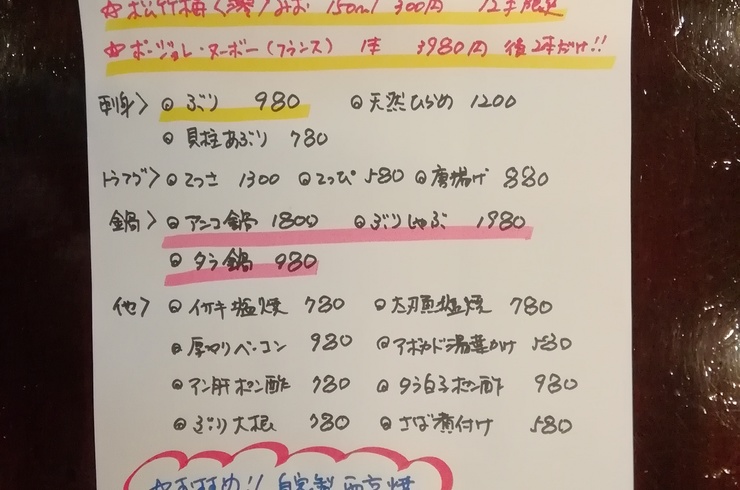 ☆ 松竹梅〈澪〉みお 150ml 300円
☆ ボージョレ・ヌーボー(フランス) 1本 3980円 後2本だけ!!
刺身〉 ◎ ぶり 980 ◎ 天然ひらめ 1200
◎ 貝柱あぶり 780
トラフグ〉 ◎ てっさ 1300 ◎ てっぴ 580 ◎ 唐揚げ 880
鍋〉 ◎ アンコ鍋 1800 ◎ ぶりしゃぶ 1980
◎ タラ鍋 980
他〉 ◎ イサキ塩焼 780 ◎ 太刀魚塩焼 780
◎ 厚切りベーコン 980 ◎ アボカド湯葉かけ 580
◎ アン肝ポン酢 780 ◎ タラ白子ポン酢 980
◎ ぶり大根 780 ◎ さば煮付け 580
おすすめ!! 自家製西京焼